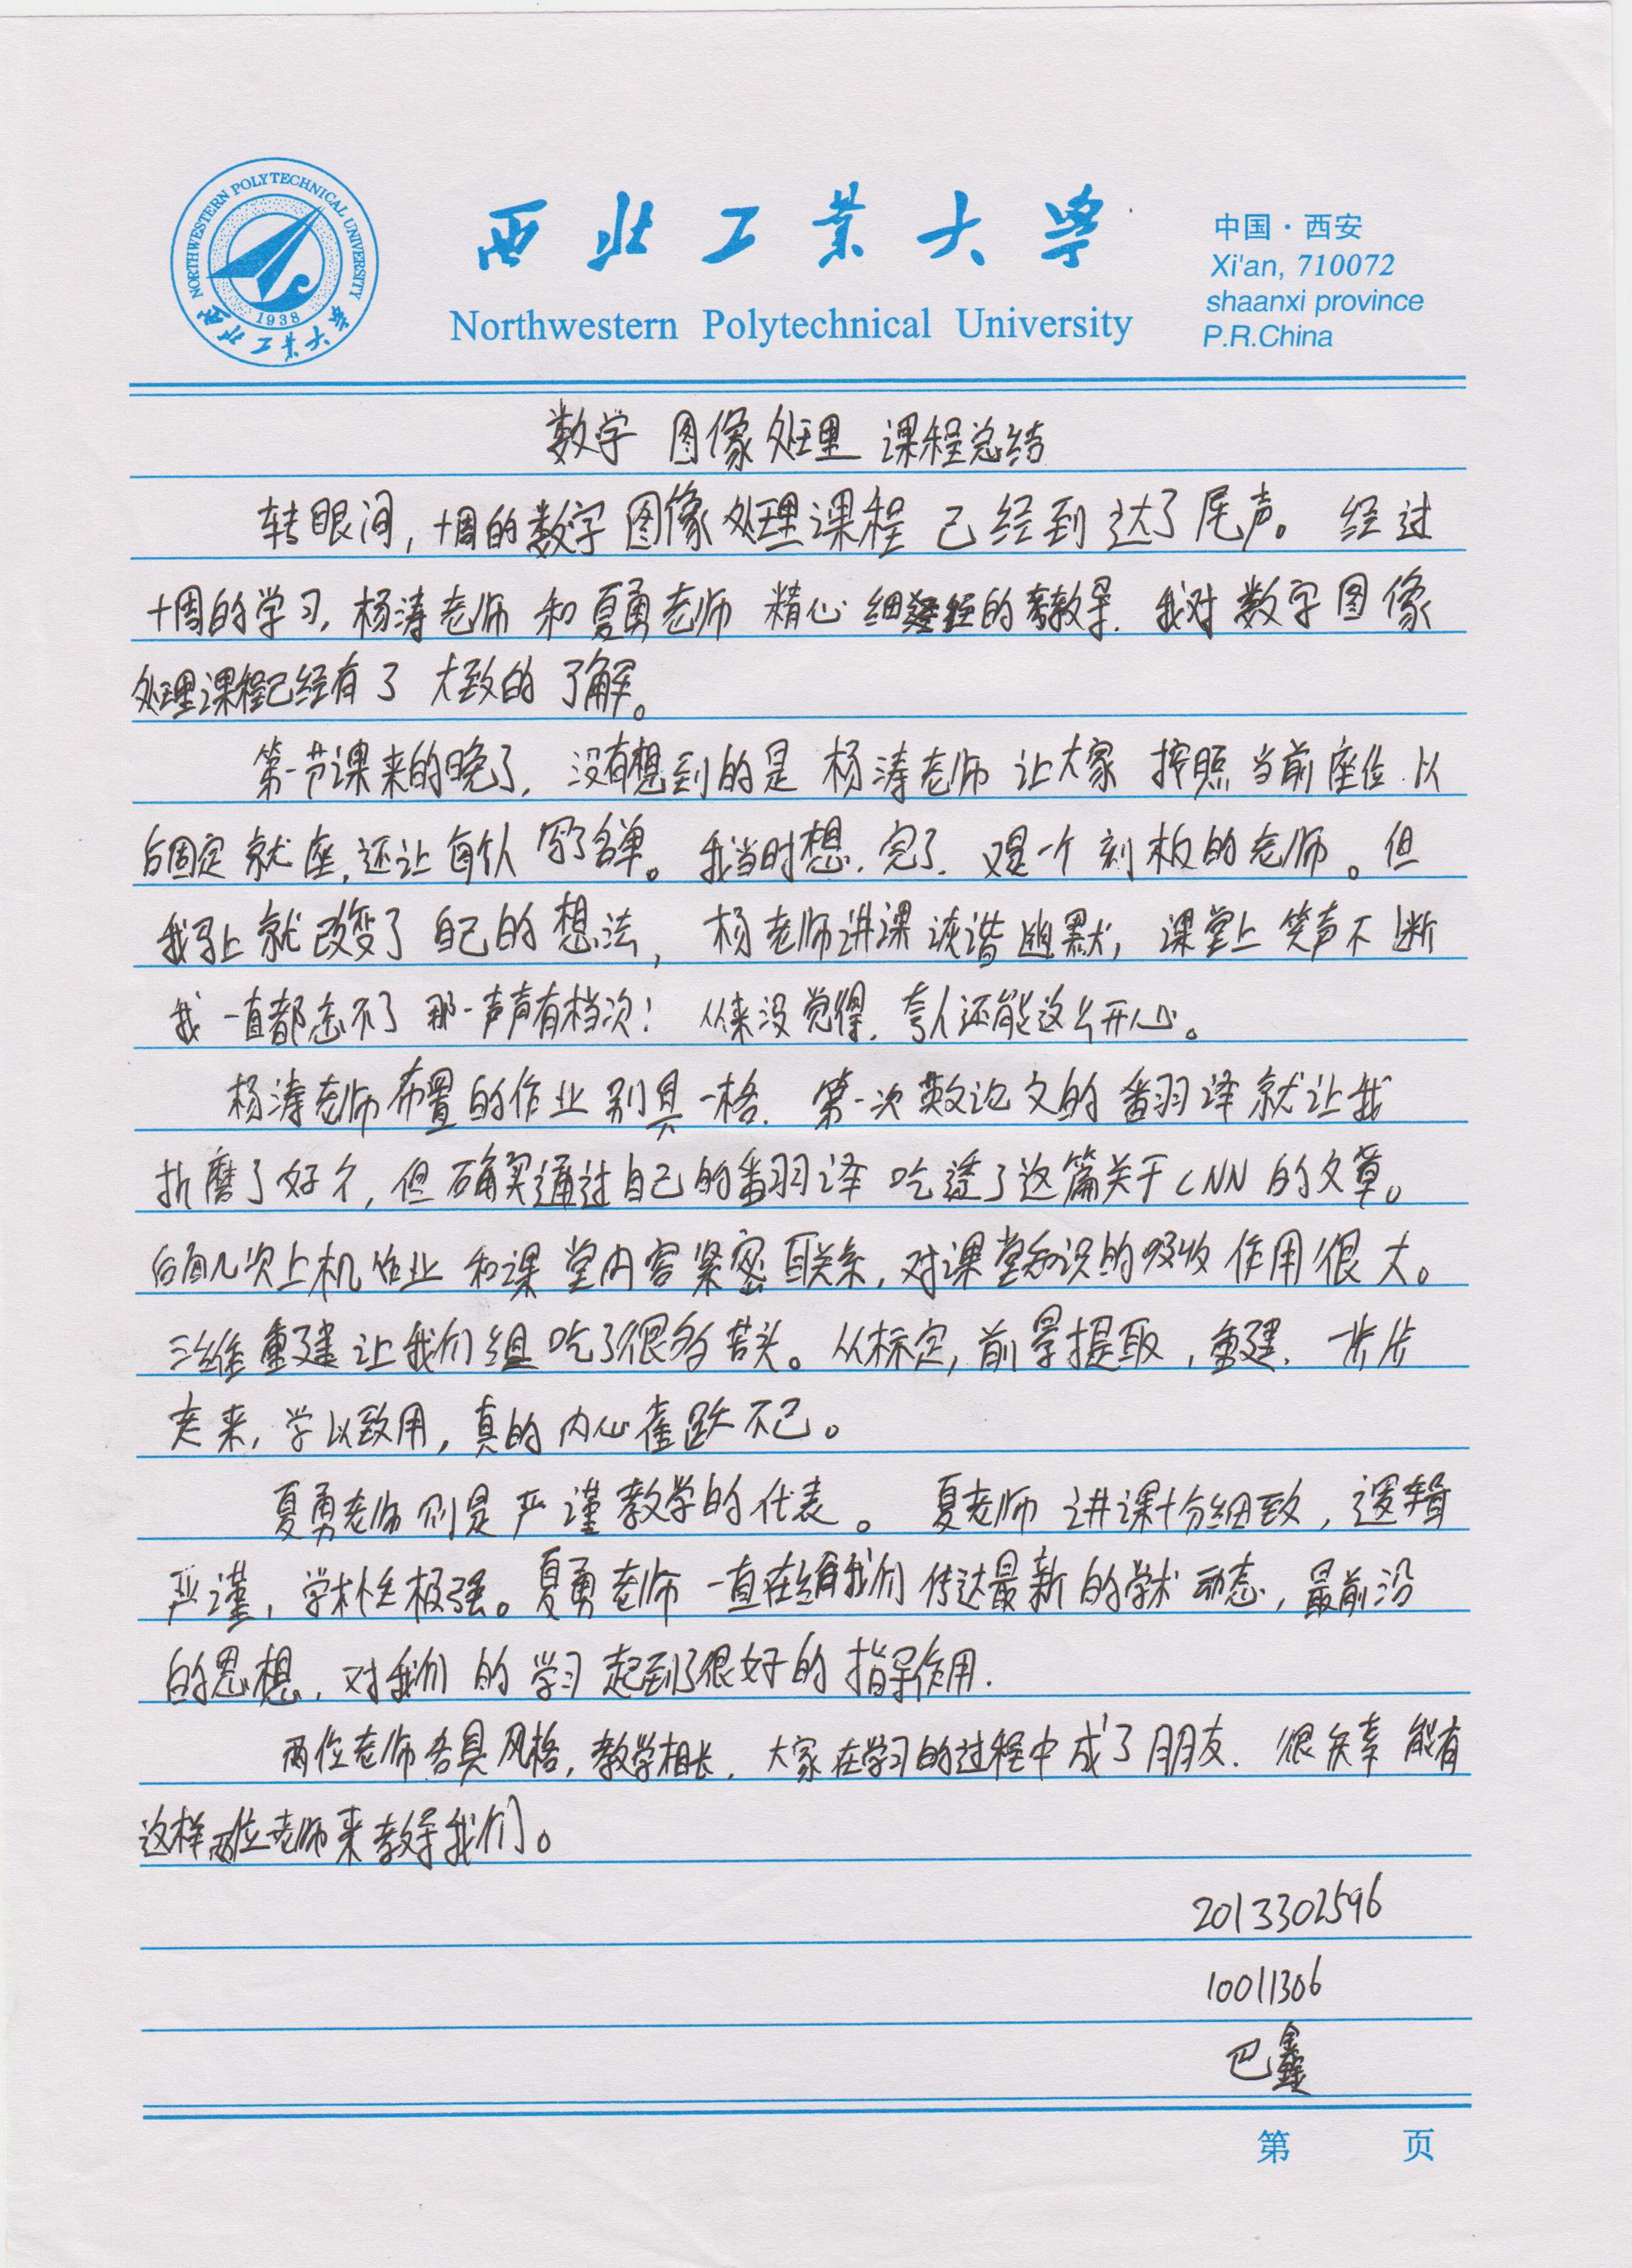 NORTHWESTERN POLYTECHNICAL UNIVERSITY
1938
西北工业大学
西北工业大学
Northwestern Polytechnical University
中国·西安
Xi'an, 710072
shaanxi province
P.R.China
数字 图像处理 课程总结
转眼间,十周的数字图像处理课程 已经到达了尾声。 经过
十周的学习,杨涛老师 和夏勇老师 精心 细致的教导,我对数字图像
处理课程已经有了 大致的了解。
第一节课来的晚了,没有想到的是 杨涛老师 让大家 按照当前座位 以
后固定就座,还让每个人写了名单。我当时想,完了,又是一个刻板的老师。但
我马上就改变了自己的想法, 杨老师讲课诙谐幽默,课堂上笑声不断
我一直都忘不了那一声声有档次! 从来没觉得,夸人还能这么开心。
杨涛老师布置的作业别具一格,第一次英文论文的翻译就让我
折磨了好个,但确实通过自己的翻译吃透了这篇关于CNN的文章。
后面几次上机作业 和课堂内容紧密联系,对课堂知识的吸收作用很大。
三维重建让我们组吃了很多苦头。从标定,前景提取,重建,一步步
走来,学以致用,真的内心雀跃不已。
夏勇老师则是严谨教学的代表。 夏老师讲课十分细致,逻辑
严谨,学术性极强。夏勇老师一直在给我们传达最新的学术动态,最前沿
的思想,对我们的学习起到了很好的指导作用.
两位老师各具风格,教学相长,大家在学习的过程中成了朋友.很庆幸能有
这样两位老师来教导我们。
2013302596
10011306
巴鑫
第 页